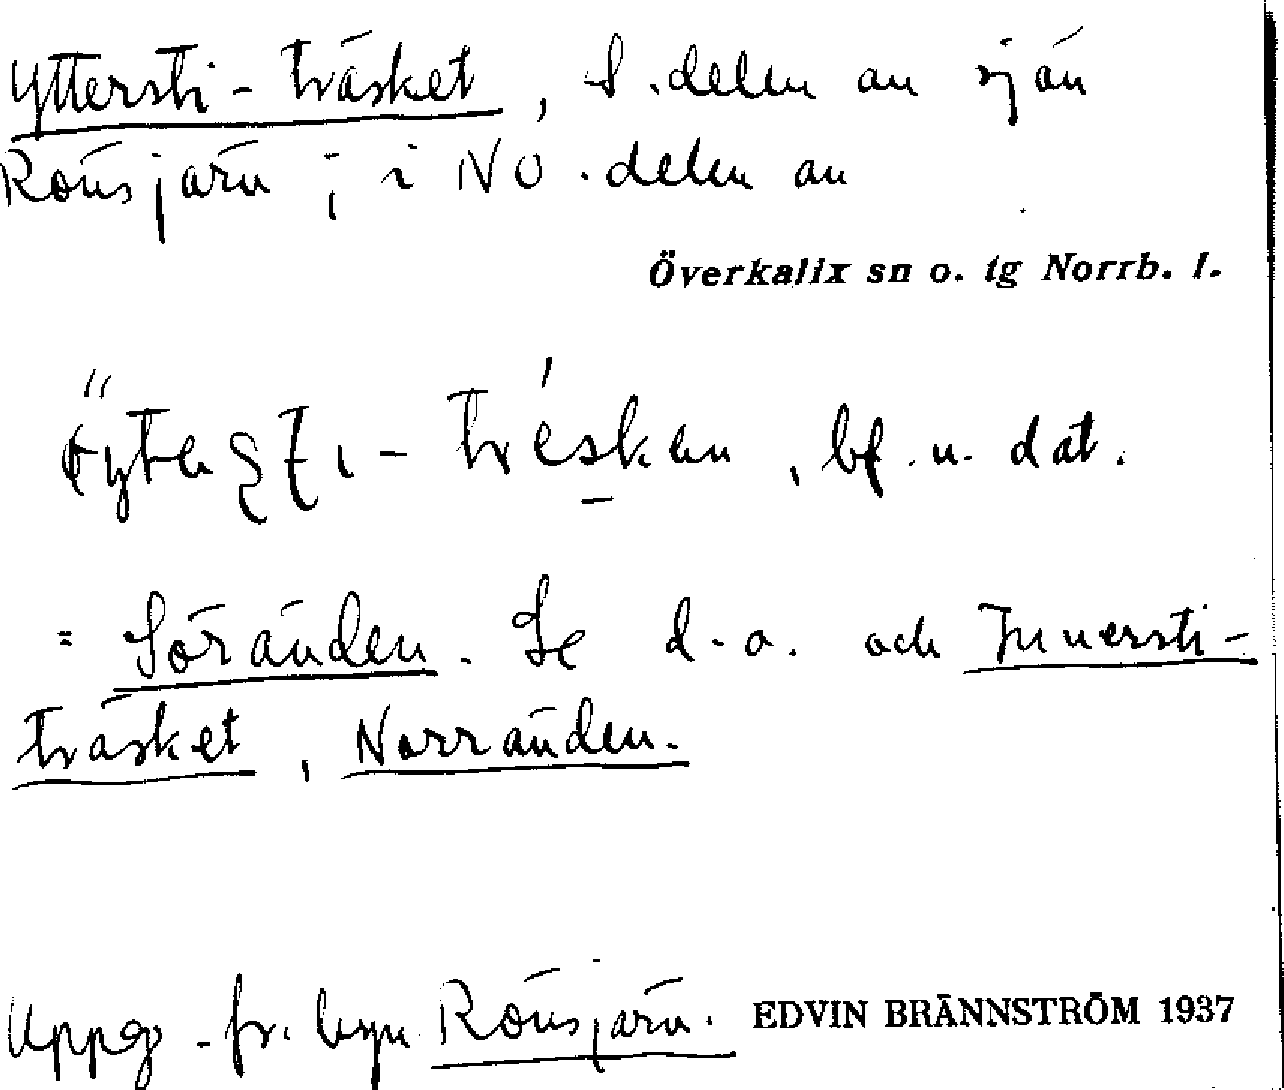 Yttersti-träsket, S.delen av sjön
Rönsjärv; i NO.delen av
Överkalix sn o. tg Norrb. l.
-träskan, bf. n. dat.
= Söränden. Se d.o. och Innersti-
träsket, Norränden.
Uppg. fr. byn Rönsjärv. EDVIN BRÄNNSTRÖM 1937